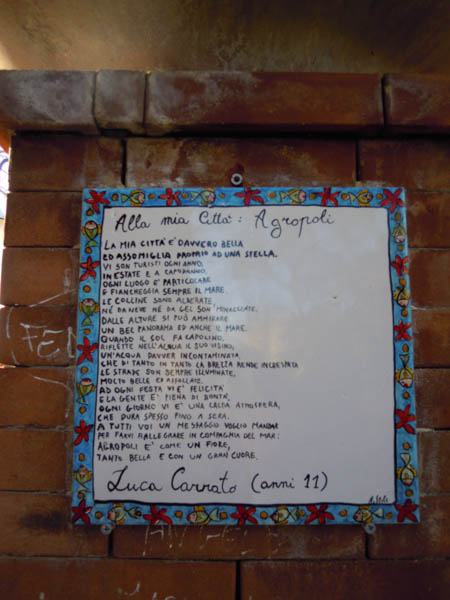 Alla mia Città: Agropoli
LA MIA CITTA' E' DAVVERO BELLA
ED ASSOMIGLIA PROPRIO AD UNA STELLA.
VI SON TURISTI OGNI ANNO,
IN ESTATE E A CAPODANNO,
OGNI LUOGO E' PARTICOLARE
E FIANCHEGGIA SEMPRE IL MARE.
LE COLLINE SONO ALBERATE,
NÉ DA NEVE NÉ DA GEL SON MINACCIATE.
DALLE ALTURE SI PUÒ AMMIRARE
UN BEL PANORAMA ED ANCHE IL MARE.
QUANDO IL SOL FA CAPOLINO,
RIFLETTE NELL'ACQUA IL SUO VISINO,
UN'ACQUA DAVVER INCONTAMINATA
CHE DI TANTO IN TANTO LA BREZZA RENDE INCRESPATA
LE STRADE SON SEMPRE ILLUMINATE,
MOLTO BELLE ED AFFOLLATE.
AD OGNI FESTA VI E' FELICITÀ
E LA GENTE E' PIENA DI BONTÀ,
OGNI GIORNO VI E' UNA CALDA ATMOSFERA,
CHE DURA SPESSO FINO A SERA.
A TUTTI VOI UN MESSAGGIO VOGLIO MANDAR
PER FARVI RALLEGRARE IN COMPAGNIA DEL MAR:
AGROPOLI E' COME UN FIORE,
TANTO BELLA E CON UN GRAN CUORE.
Luca Carrato (anni 11)